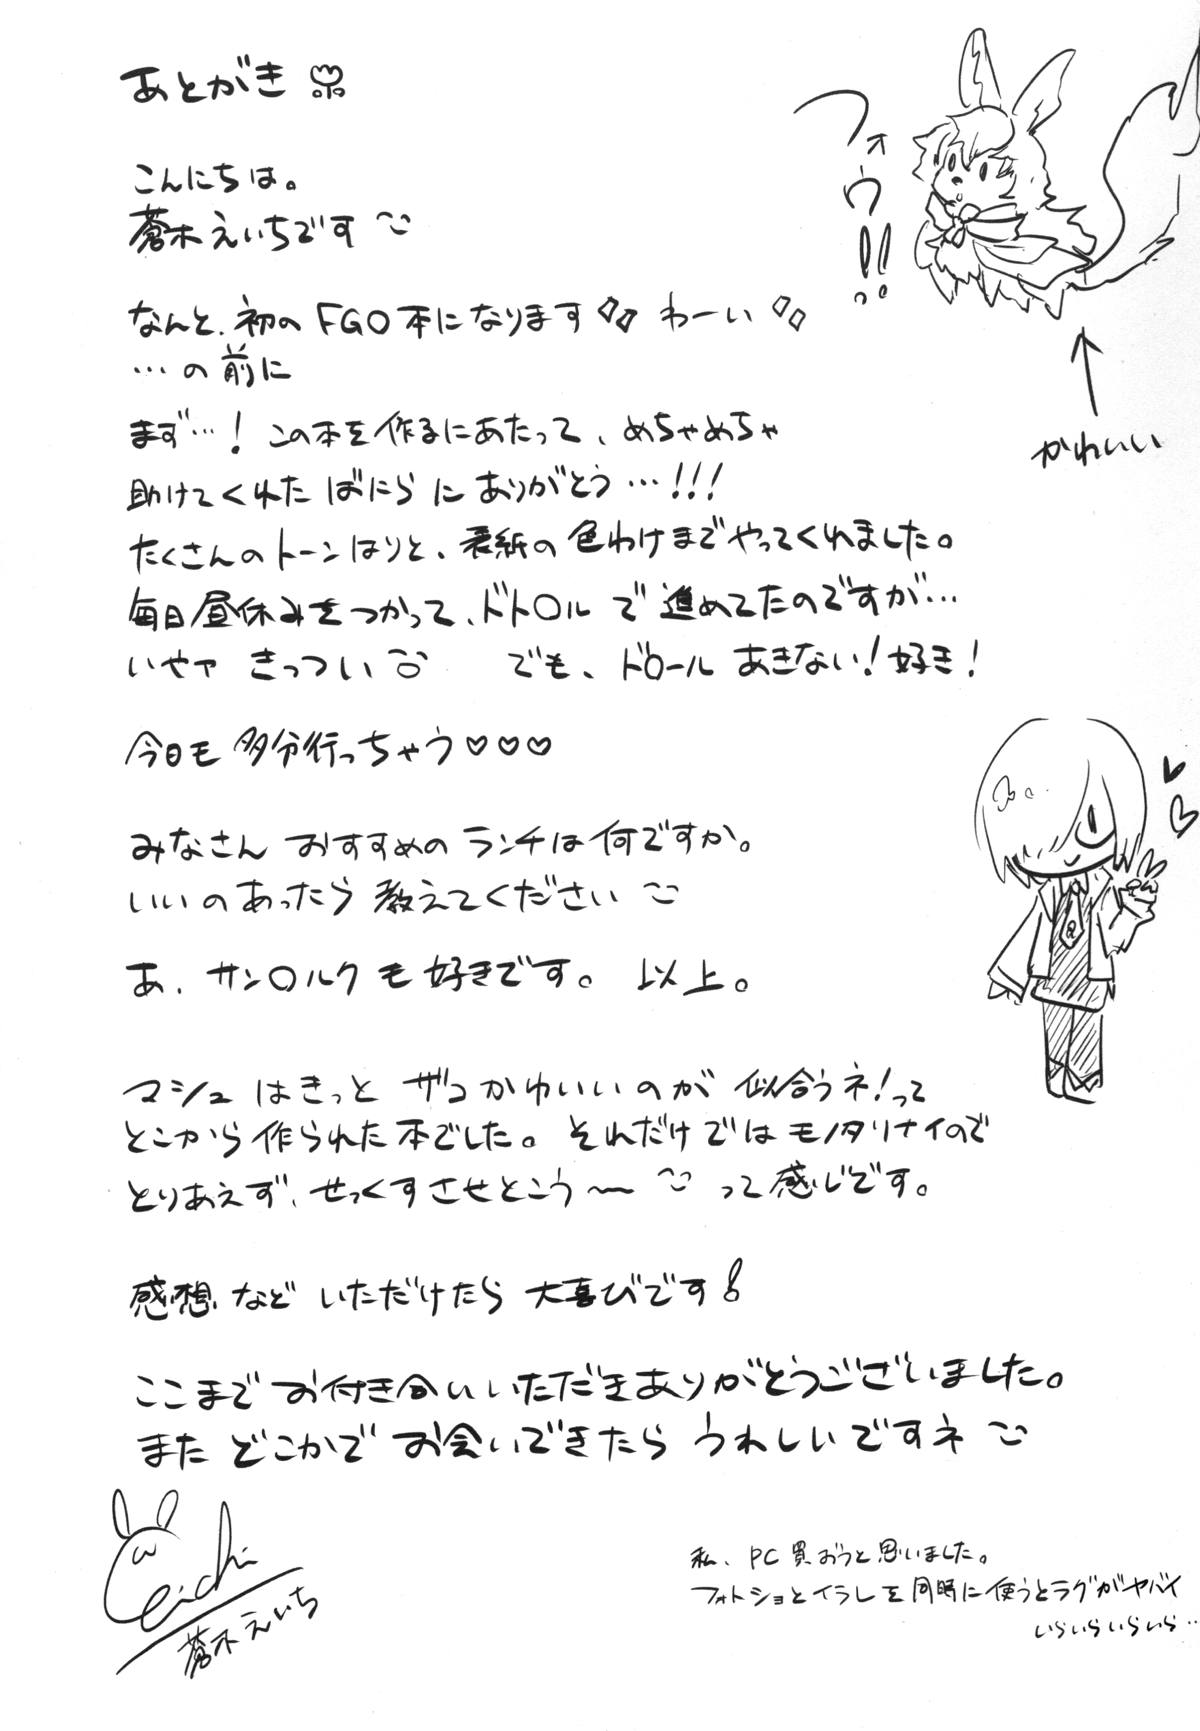 あとがき
フォウ!!
こんにちは。
蒼木えいちです
かわいい
なんと、初のFGO本になります わーい
…の前に
まず…!この本を作るにあたって、めちゃめちゃ
助けてくれた ばにら に ありがとう…!!!
たくさんのトーンはりと、表紙の色わけまでやってくれました。
毎日昼休みをつかって、ドト○ルで進めてたのですが…
いやァ きっつい でも、ド○ール あきない!好き!
今日も多分行っちゃう♡♡♡
みなさん おすすめのランチは何ですか。
いいのあったら教えてください
あ、サン○ルクも好きです。 以上。
マシュはきっと ザコかわいいのが 似合うネ!って
とこから作られた本でした。それだけではモノタリナイので
とりあえず、せっくすさせとこう〜 って感じです。
感想などいただけたら大喜びです!
ここまでお付き合いいただきありがとうございました。
また どこかで お会いできたら うれしいですネ
eichi
蒼木えいち
私、PC買おうと思いました。
フォトショとイラレを同時に使うとラグがヤバイ
いらいらいらいら…